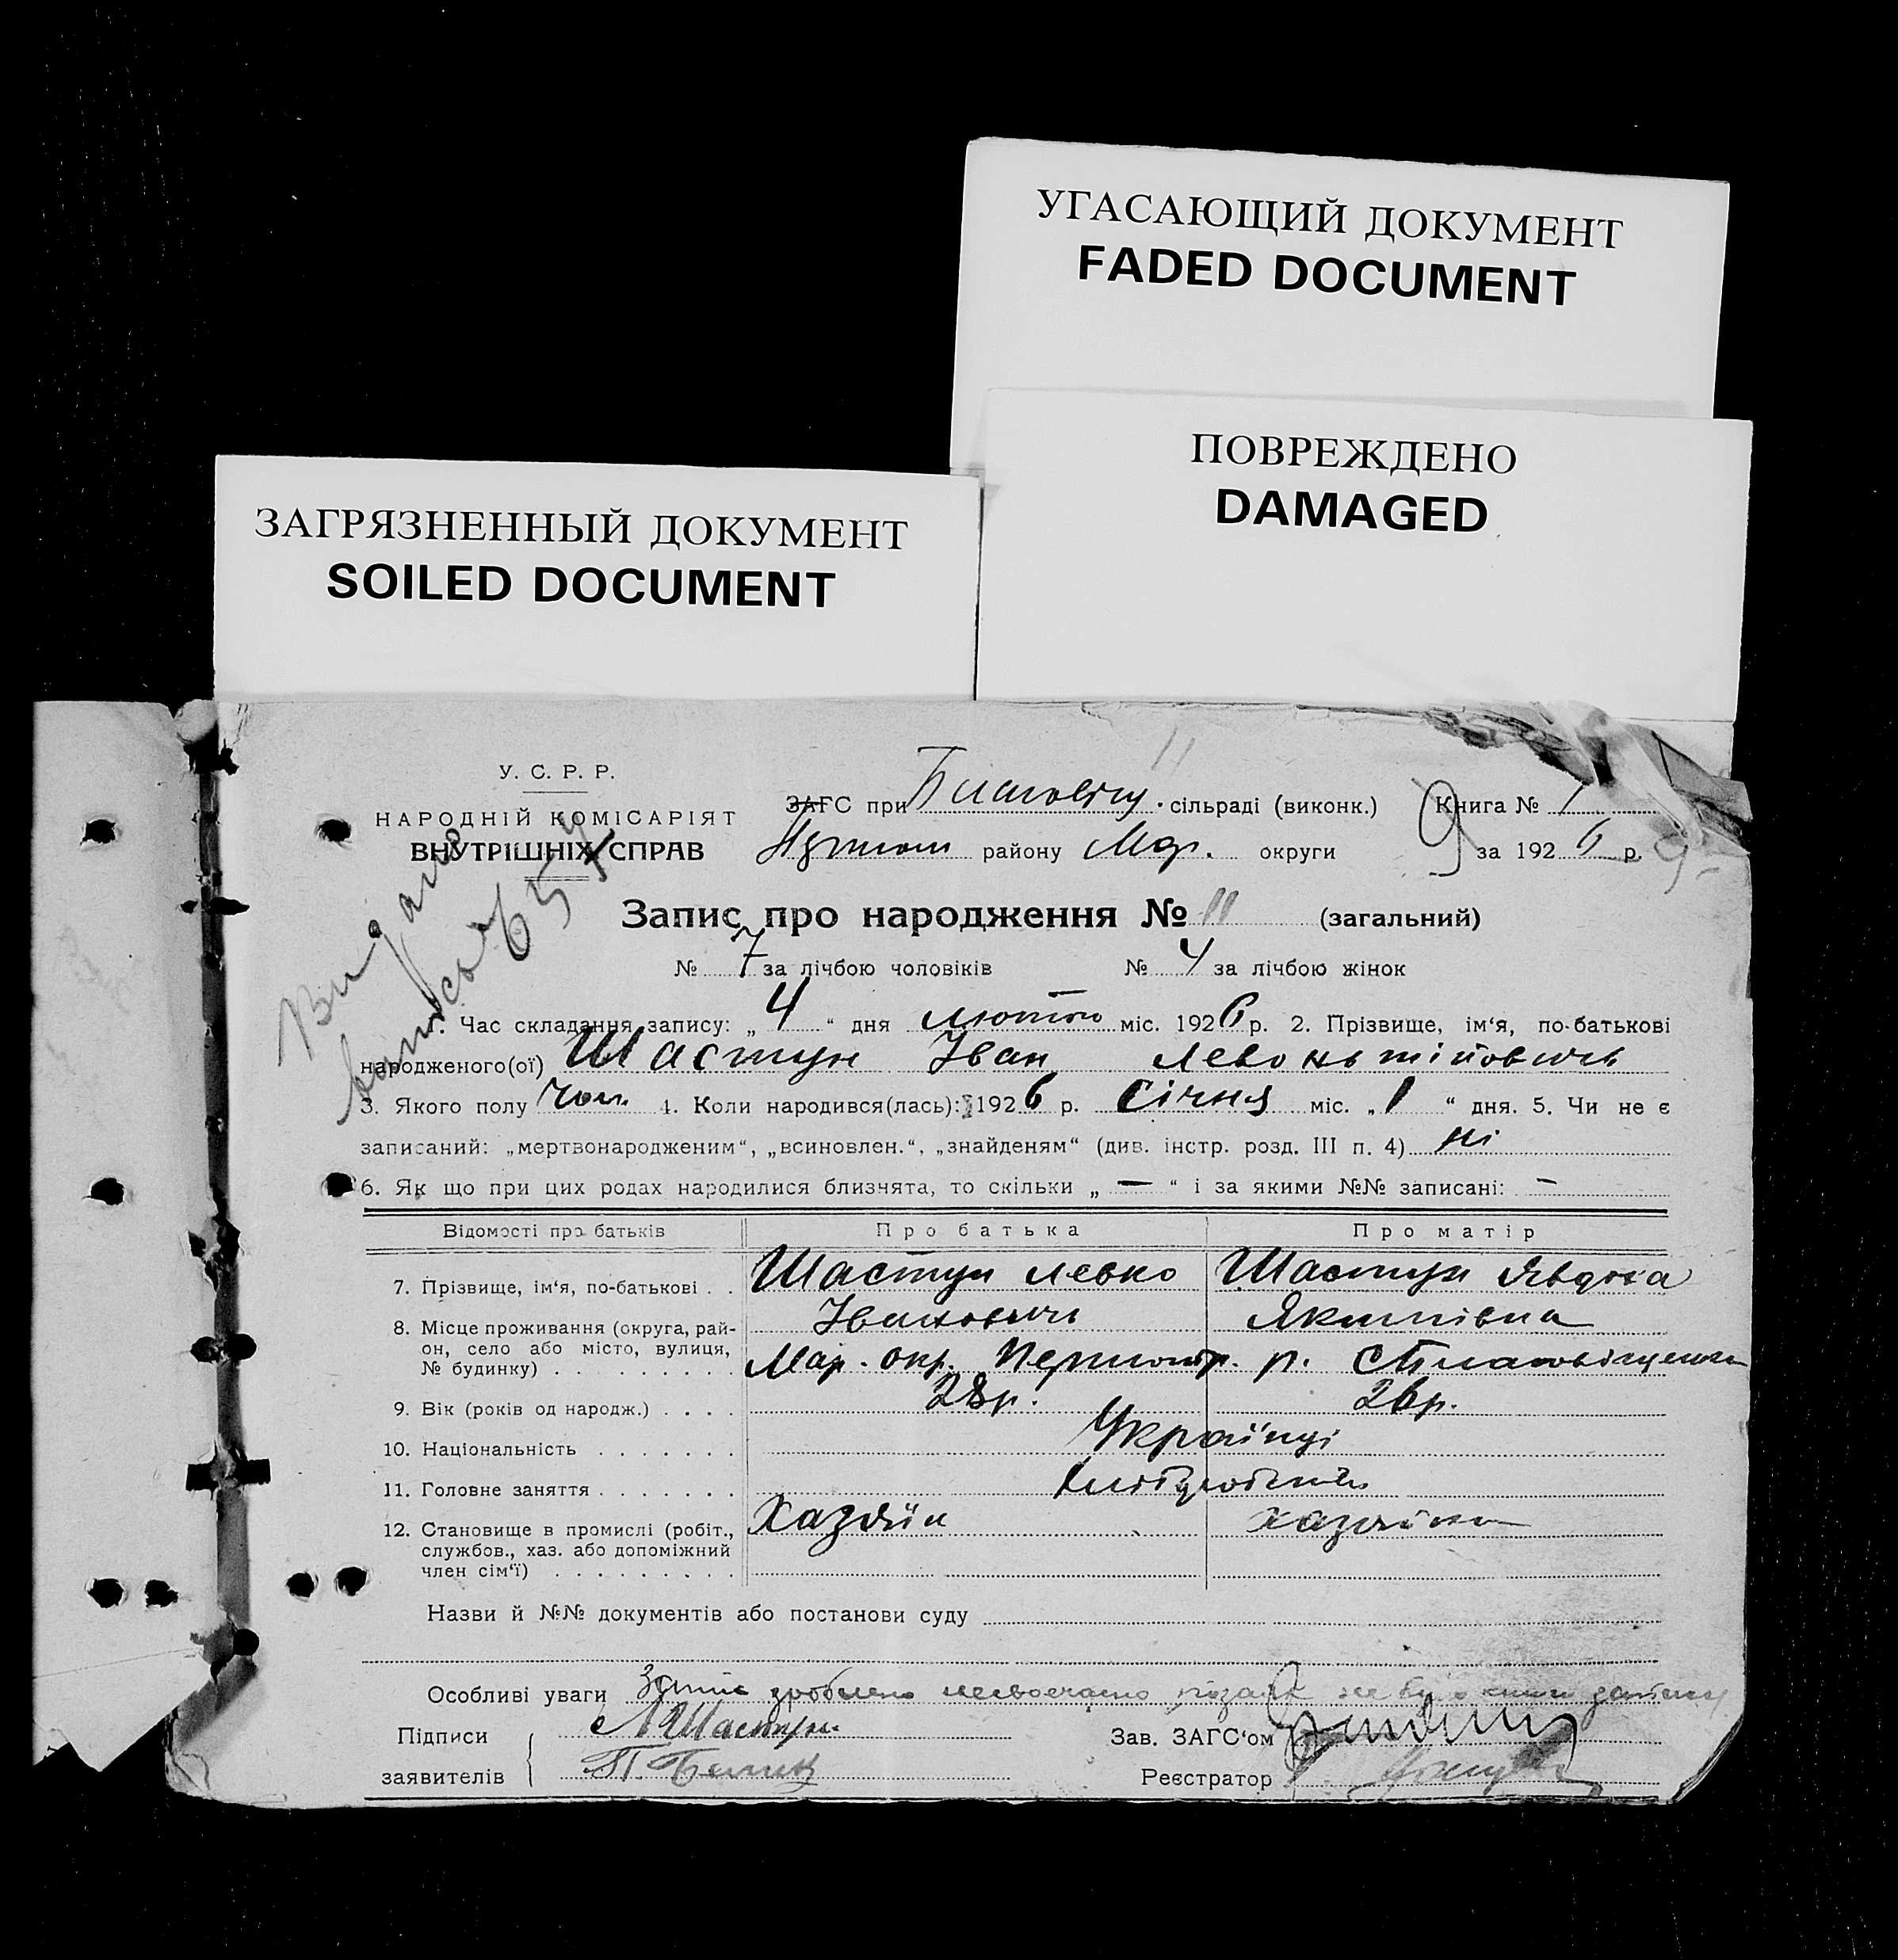 УГАСАЮЩИЙ ДОКУМЕНТ
FADED DOCUMENT
ПОВРЕЖДЕНО
DAMAGED
ЗАГРЯЗНЕННЫЙ ДОКУМЕНТ
SOILED DOCUMENT
11
У. С. Р. Р.
НАРОДНІЙ КОМІСАРІЯТ
ВНУТРІШНІХ СПРАВ
ЗАГС при сільраді (виконк.) Книга № 1
району Мар. округи за 1926 р.
Видано
657
Запис про народження № 11 (загальний)
№ 7 за лічбою чоловіків № 4 за лічбою жінок
1. Час складання запису: „4“ дня лютого міс. 1926 р. 2. Прізвище, ім‘я, по-батькові
народженого(ої) Шастун Іван Левонтійович
3. Якого полу чол. 4. Коли народився(лась): 1926 р. Січня міс. „1“ дня. 5. Чи не є
записаний: „мертвонародженим“, „всиновлен.“, „знайденям“ (див. інстр. розд. III п. 4) ні
6. Як що при цих родах народилися близнята, то скільки „—“ і за якими №№ записані: —
Відомості про батьків Про батька Про матір
7. Прізвище, ім‘я, по-батькові . . Шастун Левко Шастун Явдоха
Іванович Якимівна
8. Місце проживання (округа, рай-
он, село або місто, вулиця,
№ будинку) . . . . . . . . . Мар. окр. р. с.
9. Вік (років од народж.) . . . 28 р. 26 р.
10. Національність . . . . . . . Українці
11. Головне заняття . . . . . . . Хліборобство
12. Становище в промислі (робіт., Хазяїн хазяйка
службов., хаз. або допоміжний
член сім‘ї) . . . . . . . . .
Назви й №№ документів або постанови суду
Особливі уваги Запис зроблено несвоєчасно позаяк не було книги
Підписи Л Шастун Зав. ЗАГС‘ом
заявителів П. Реєстратор